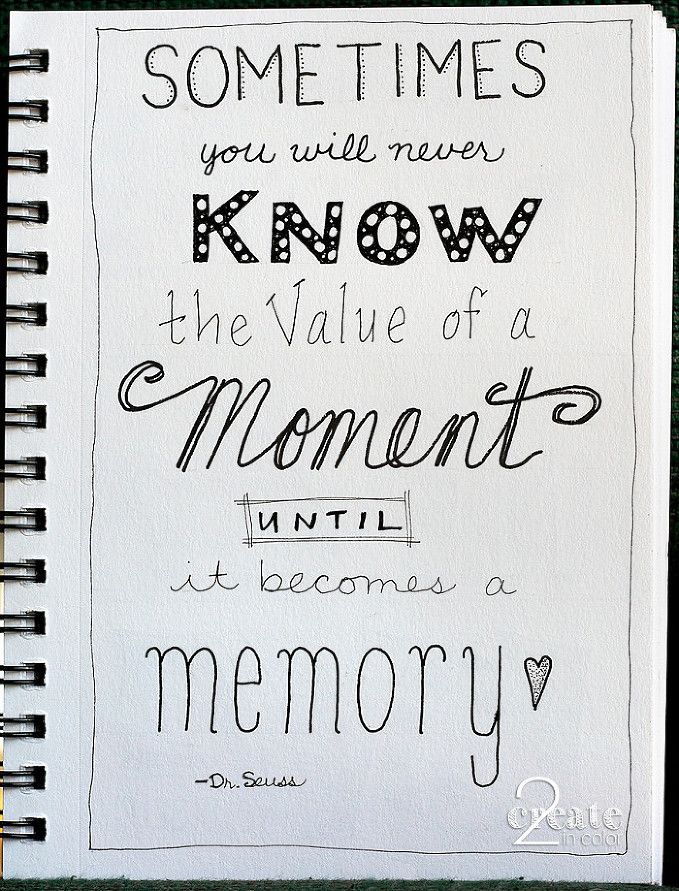 SOMETIMES
you will never
KNOW
the Value of a
Moment
UNTIL
it becomes a
memory
-Dr. Seuss
2
create
in color